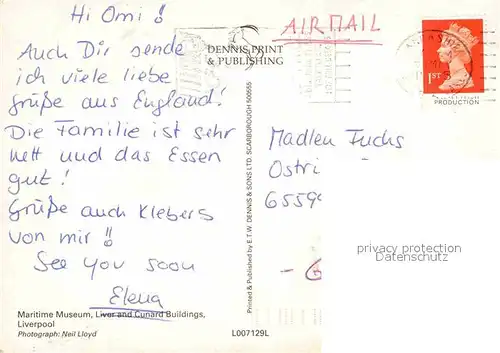 Hi Omi!
Auch Dir sende
ich viele liebe
Grüße aus England!
Die Familie ist sehr
nett und das Essen
gut!
Grüße auch Klebers
von mir!!
See you soon
Elena
Maritime Museum, Liver and Cunard Buildings,
Liverpool
Photograph: Neil Lloyd
DENNIS PRINT
& PUBLISHING
Printed & Published by E.T.W. DENNIS & SONS LTD. SCARBOROUGH 500555
L007129L
AIR MAIL
1ST
PRODUCTION
Madlen Fuchs
Ostri
6559
privacy protection
Datenschutz
- G